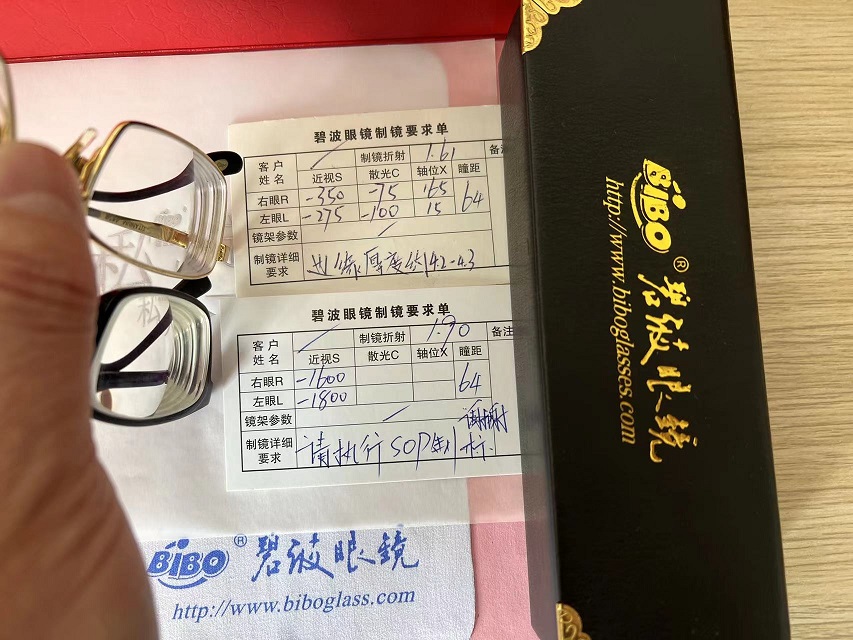 碧波眼镜制镜要求单
客户姓名 / 制镜折射 1.61 备注
近视S 散光C 轴位X 瞳距
右眼R -350 -75 165 64
左眼L -275 -100 15
镜架参数 /
制镜详细要求 边缘厚度 4.2-4.3
碧波眼镜制镜要求单
客户姓名 / 制镜折射 1.90 备注
近视S 散光C 轴位X 瞳距
右眼R -1600 64
左眼L -1800
镜架参数 / 谢谢
制镜详细要求 请执行SOP
BiBO® 碧波眼镜
http://www.biboglass.com
BiBO® 碧波眼镜
http://www.biboglasses.com